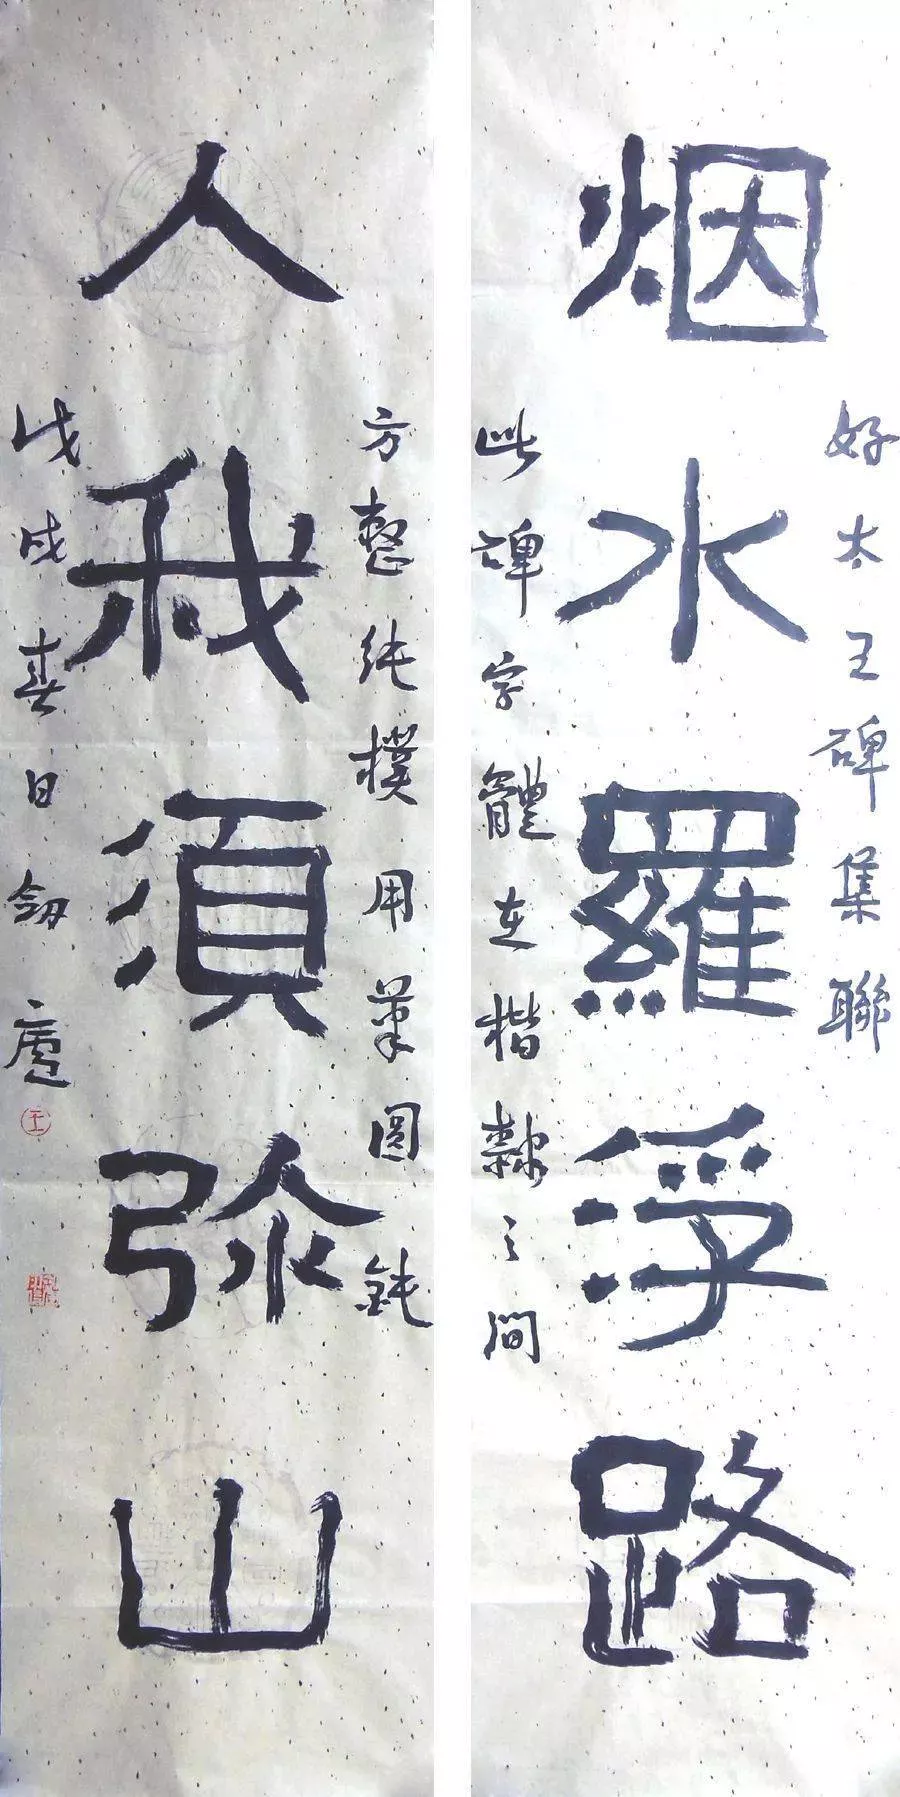 好太王碑集聯
烟水羅浮路
此碑字體在楷隸之間
方整純樸用筆圓鈍
人我須弥山
戊戌春日劍廬
王